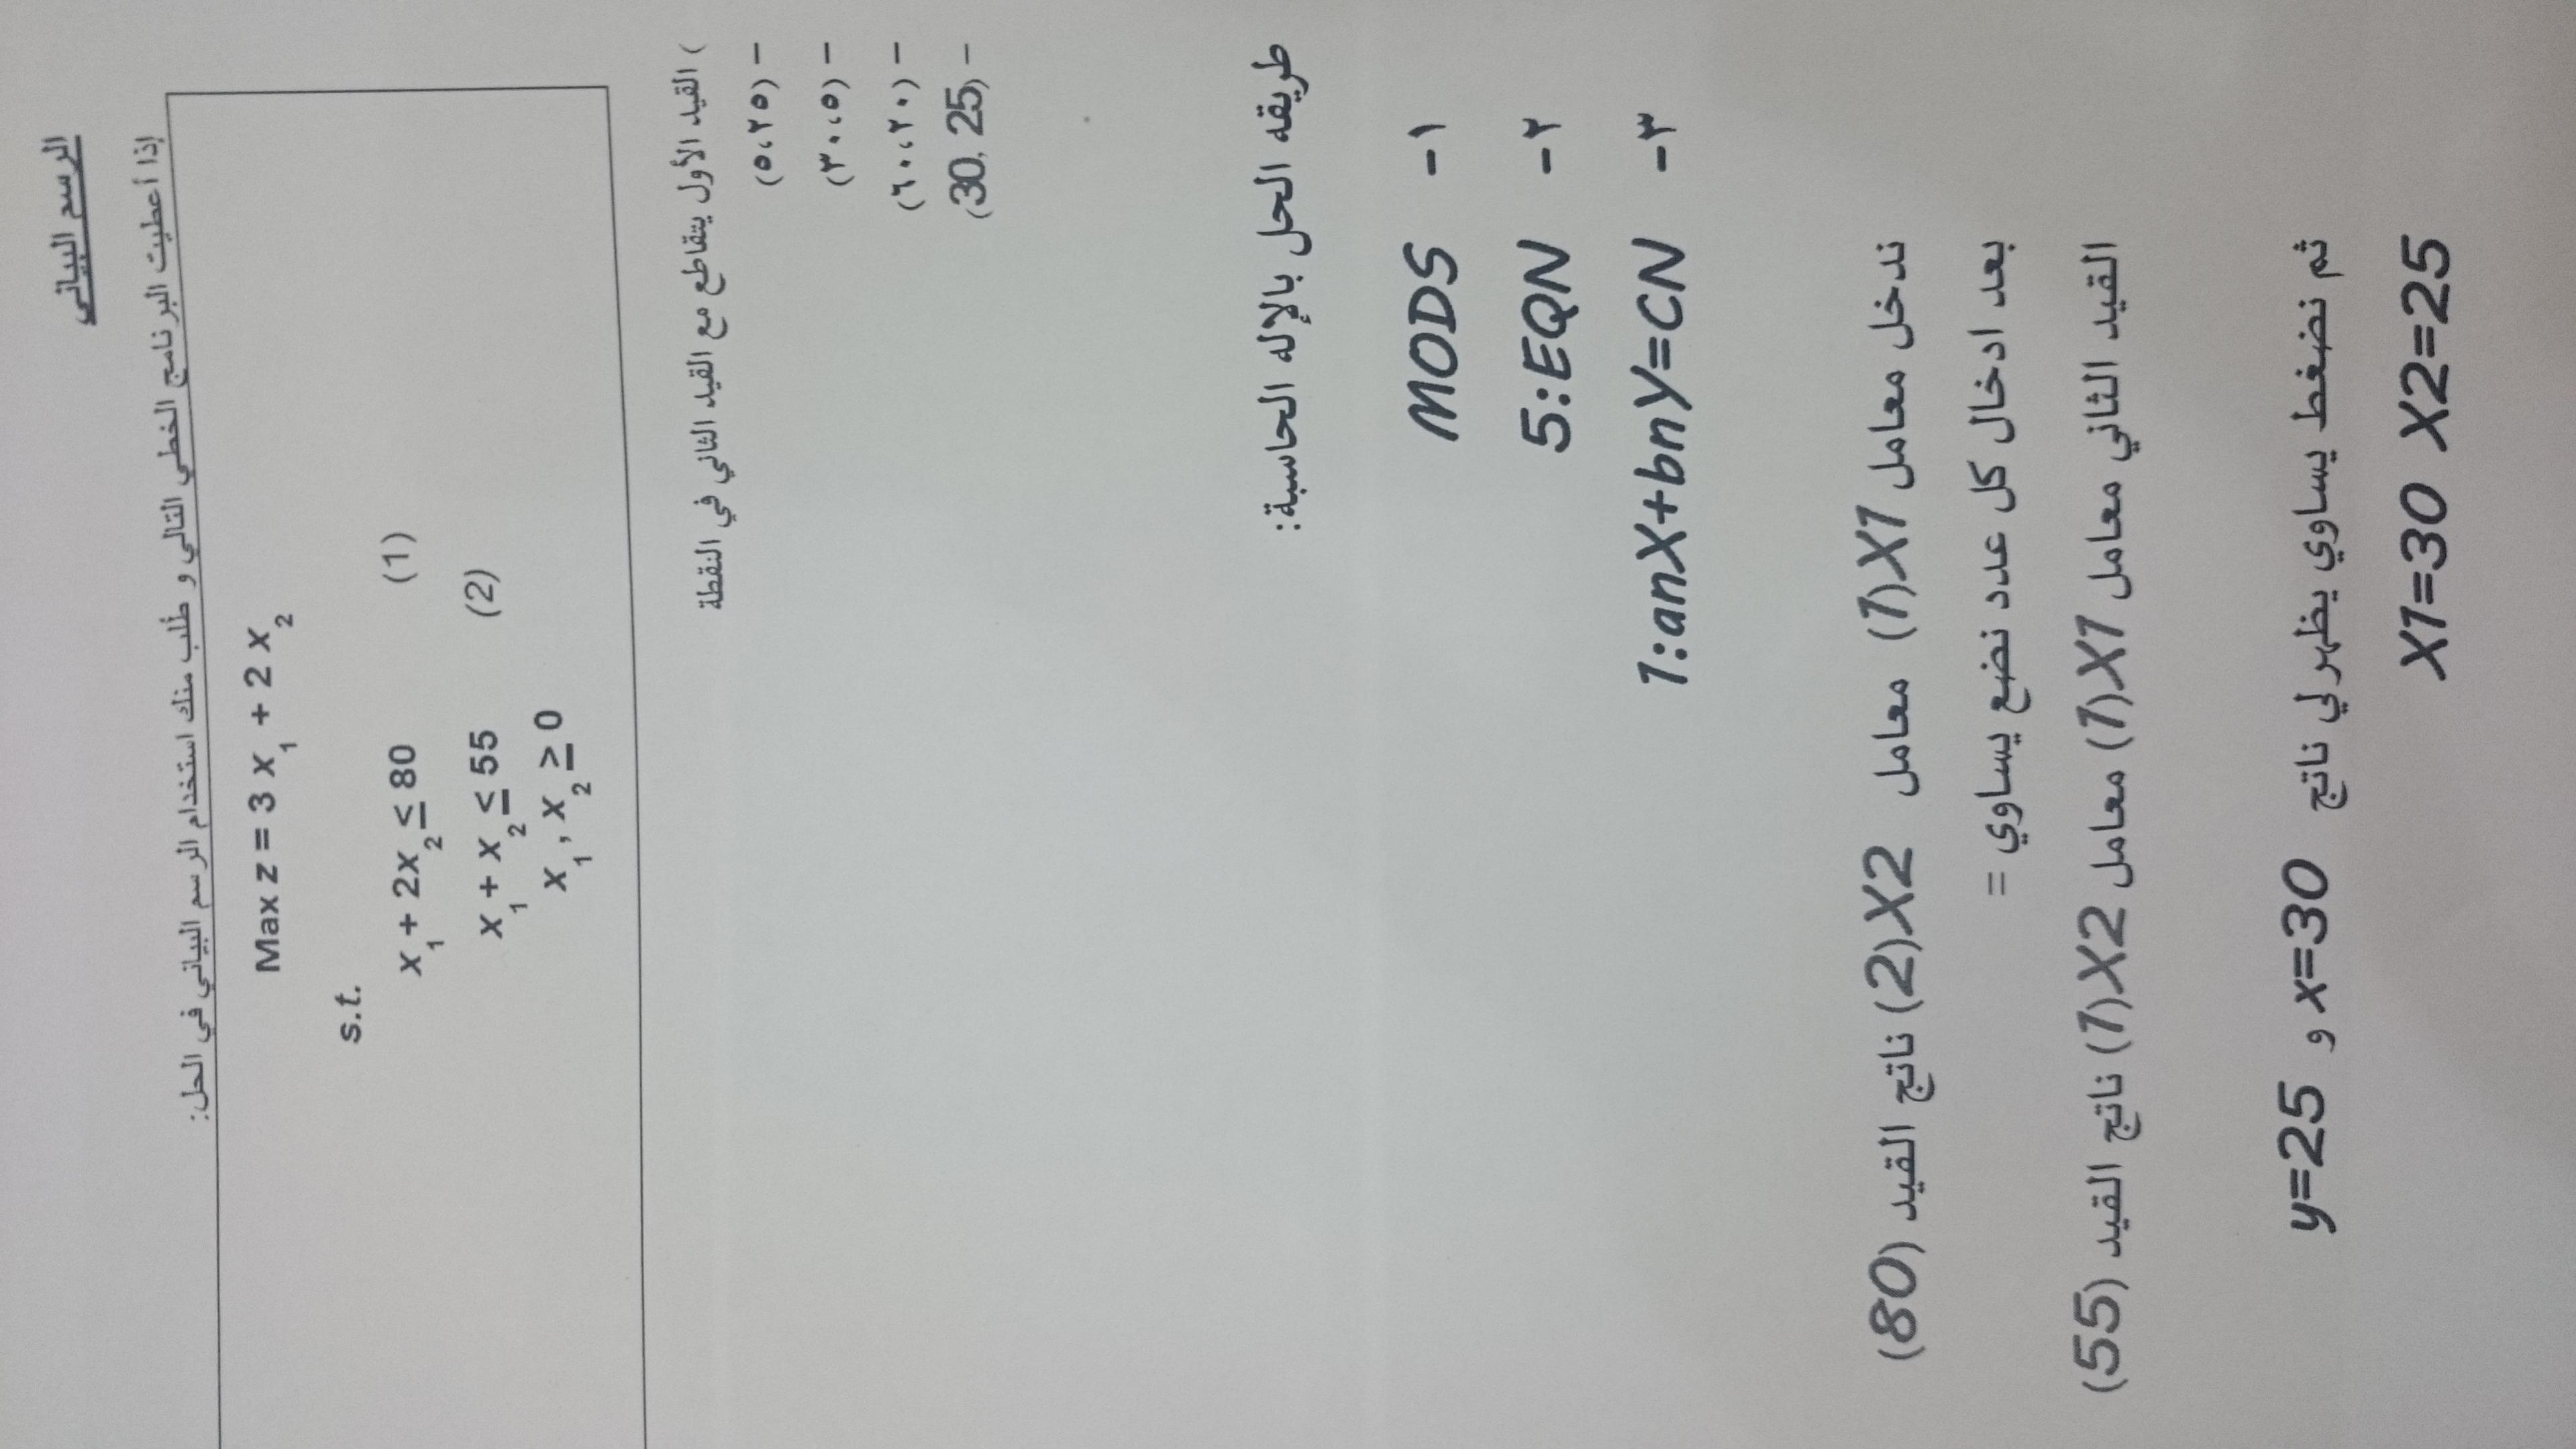 الرسم البياني
إذا أعطيت البرنامج الخطي التالي و طُلب منك استخدام الرسم البياني في الحل:
Max z = 3 x1 + 2 x2
s.t.
x1 + 2x2 ≤ 80 (1)
x1 + x2 ≤ 55 (2)
x1 , x2 ≥ 0
) القيد الأول يتقاطع مع القيد الثاني في النقطة
- (٥،٢٥)
- (٣٠،٥)
- (٦٠،٢٠)
- (30, 25)
طريقه الحل بالإله الحاسبة:
١- MODS
٢- 5:EQN
٣- 1:anX+bnY=CN
ندخل معامل X1(1) معامل X2(2) ناتج القيد (80)
بعد ادخال كل عدد نضع يساوي =
القيد الثاني معامل X1(1) معامل X2(1) ناتج القيد (55)
ثم نضغط يساوي يظهر لي ناتج x=30 و y=25
X1=30 X2=25